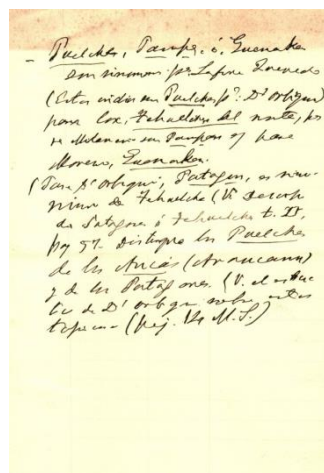 - Puelches, Pampas, ó, Guenaken
son sinonimos para Lafone Quevedo
(Estos indios son Puelches pª. D'orbigny
para Cox, Tehuelches del norte, los
de Molina son Pampas y para
Moreno, Guenaken.
(Para D'orbigni, Patagon, es sino-
nimo de Tehuelche (Vi Descrip
de Patagones ó Tehuelche t. II,
pag 97. Distingue los Puelches
de los Aucás (Araucano)
y de los Patagones. (V. el
de D'orbigni sobre estos
(pag. 124 M.S.)